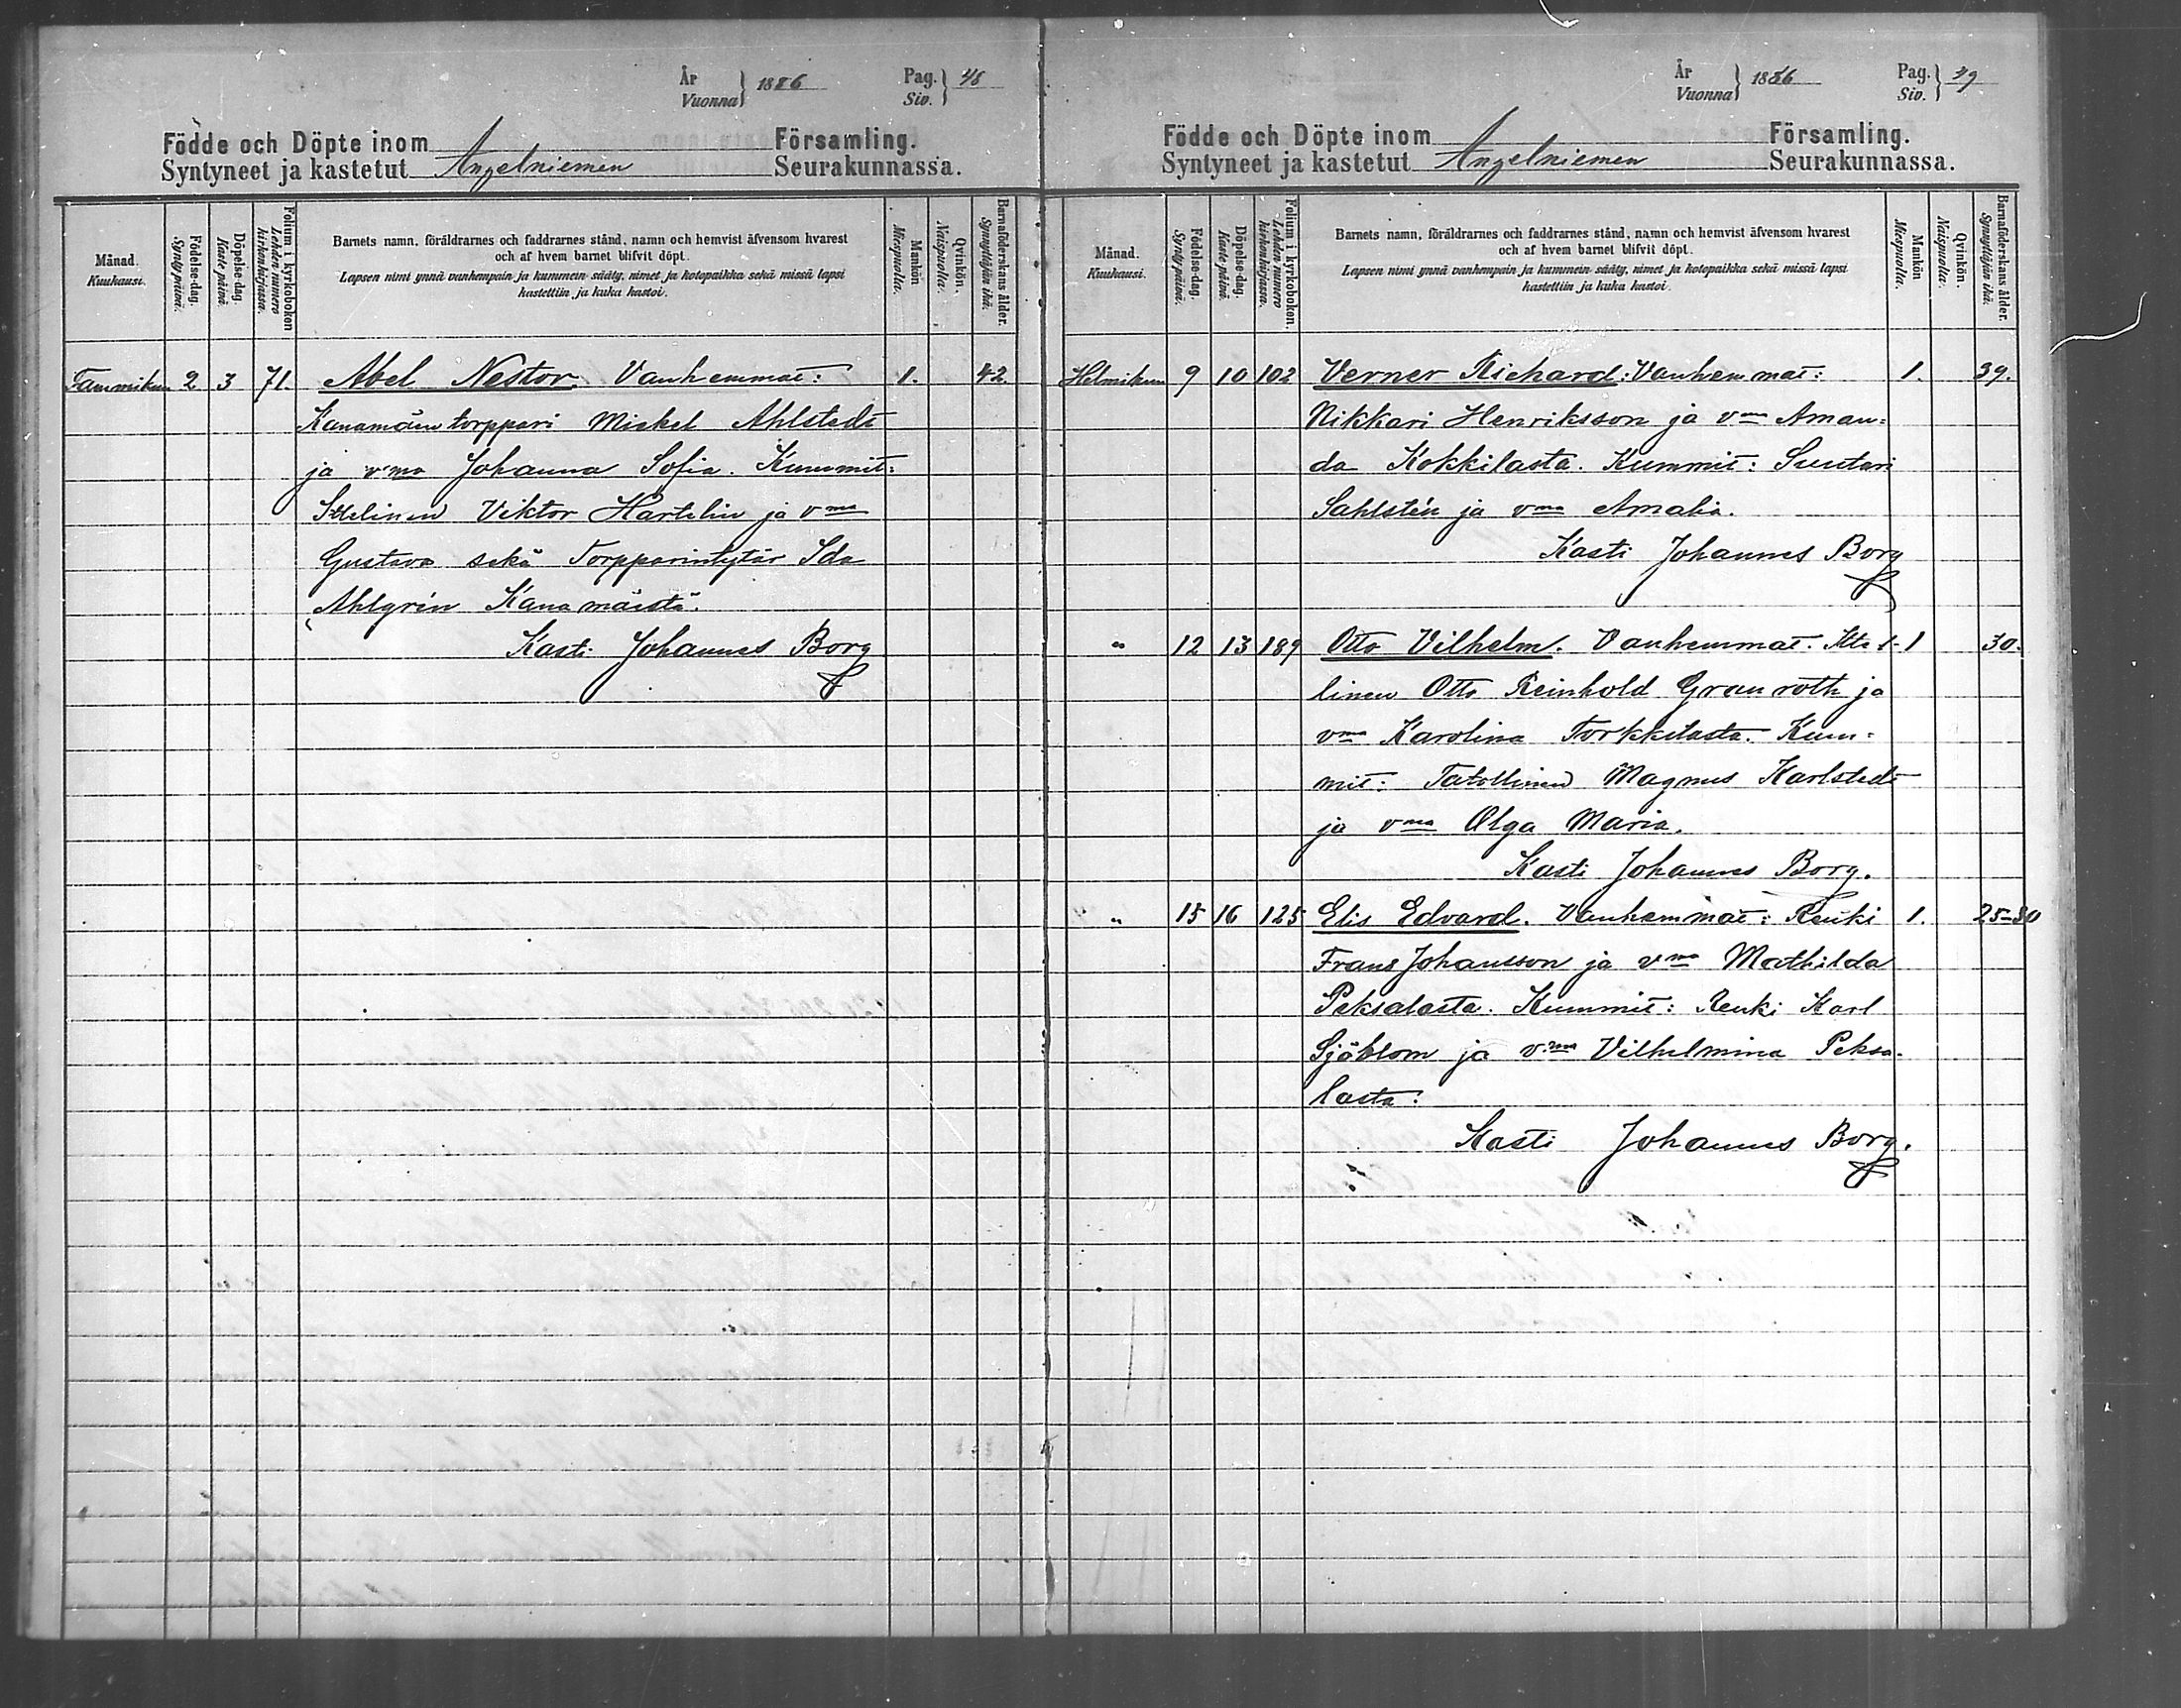 År
Vuonna } 1886
Pag.
Siv. } 48
Födde och Döpte inom Församling.
Syntyneet ja kastetut Angelniemen Seurakunnassa.
Månad. Kuukausi.
Födelse-dag. Synty päivä.
Döpelse-dag. Kaste päivä.
Folium i kyrkoboken Lehden numero kirkonkirjassa.
Barnets namn, föräldrarnes och faddrarnes stånd, namn och hemvist äfvensom hvarest
och af hvem barnet blifvit döpt.
Lapsen nimi ynnä vanhempain ja kummein sääty, nimet ja kotopaikka sekä missä lapsi
kastettiin ja kuka kastoi.
Mankön Miespuolia.
Qvinkön. Naispuolia.
Barnaföderskans ålder. Synnyttäjän ikä.
Tammikuu 2 3 71. Abel Nestor. Vanhemmat: 1. 42
Kanamäen torppari Mickel Ahlstedt
ja v:mo Johanna Sofia. Kummit:
Itselinen Viktor Hartelin ja vmo
Gustava sekä Torpparintytär Ida
Ahlgrén Kanamäistä.
Kasti Johannes Borg
År
Vuonna } 1886
Pag.
Siv. } 49
Födde och Döpte inom Församling.
Syntyneet ja kastetut Angelniemen Seurakunnassa.
Månad. Kuukausi.
Födelse-dag. Synty päivä.
Döpelse-dag. Kaste päivä.
Folium i kyrkobokon. Lehden numero kirkonkirjassa.
Barnets namn, föräldrarnes och faddrarnes stånd, namn och hemvist äfvensom hvarest
och af hvem barnet blifvit döpt.
Lapsen nimi ynnä vanhempain ja kummein sääty, nimet ja kotopaikka sekä missä lapsi
kastettiin ja kuka kastoi.
Mankön Miespuolia.
Qvinkön. Naispuolia.
Barnaföderskans ålder. Synnyttäjän ikä.
Helmikuu 9 10 102 Verner Richard: Vanhemmat: 1. 39.
Nikkari Henriksson ja vmo Aman-
da Kokkilasta. Kummit: Suutari
Sahlstén ja vmo Amalia.
Kasti Johannes Borg
" 12 13 189 Otto Vilhelm. Vanhemmat. 1 30.
linen Otto Reinhold Granroth ja
vmo Karolina Torkkilasta. Kum-
mit: Talollinen Magnus Karlstedt
ja vmo Olga Maria.
Kasti Johannes Borg.
" 15 16 125 Elis Edvard. Vanhemmat: Renki 1. 25-30
Frans Johansson ja vmo Mathilda
Peksalasta. Kummit: Renki Karl
Sjöblom ja v:mo Vilhelmina Peksa-
lasta.
Kasti Johannes Borg.